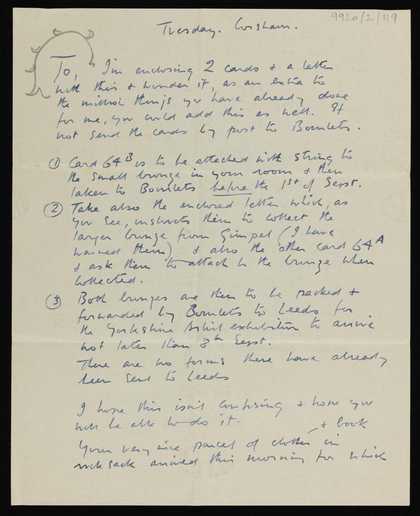 9920/2/119
Tuesday. Corsham.
To, I'm enclosing 2 cards & a letter
with this & wonder if, as an extra to
the million things you have already done
for me, you could add this as well. If
not send the cards by post to Bourlets.
① Card 64B is to be attached with string to
the small bronze in your room & then
taken to Bourlets before the 1st of Sept.
② Take also the enclosed letter which, as
you see, instructs them to collect the
larger bronze from Gimpel (I have
warned them) & also the other card 64A
& ask them to attach to the bronze when
collected.
③ Both bronzes are then to be packed &
forwarded by Bourlets to Leeds for
the Yorkshire Artist exhibition to arrive
not later than 8th Sept.
There are no forms these have already
been sent to Leeds
I hope this isn't confusing & hope you
will be able to do it.
Your very nice parcel of clothes & book in
rucksack arrived this morning for which